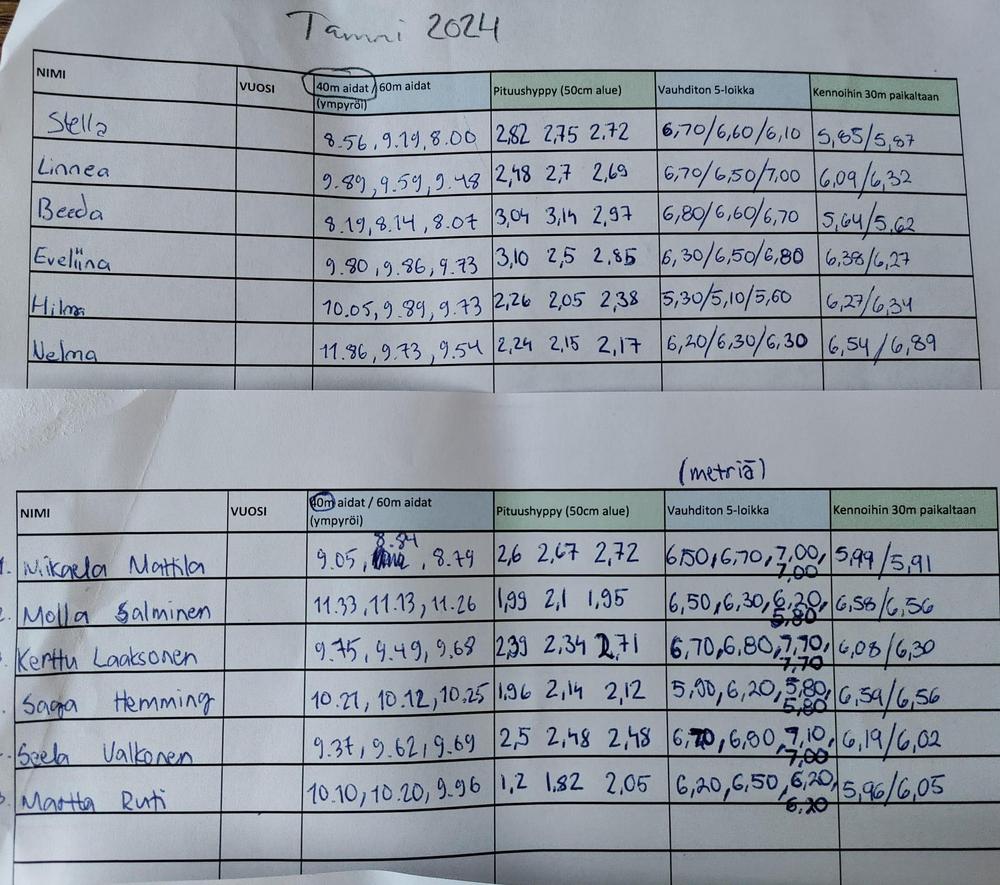 Tammi 2024
NIMI VUOSI 40m aidat / 60m aidat (ympyröi) Pituushyppy (50cm alue) Vauhditon 5-loikka Kennoihin 30m paikaltaan
Stella 8.56, 9.19, 8.00 2,82 2,75 2,72 6,70/6,60/6,10 5,85/5,87
Linnea 9.89, 9.59, 9.48 2,48 2,7 2,69 6,70/6,50/7,00 6,09/6,32
Beeda 8.19, 8.14, 8.07 3,04 3,14 2,97 6,80/6,60/6,70 5,64/5,62
Eveliina 9.80, 9.86, 9.73 3,10 2,5 2,85 6,30/6,50/6,80 6,38/6,27
Hilma 10.05, 9.89, 9.73 2,26 2,05 2,38 5,30/5,10/5,60 6,27/6,34
Nelma 11.86, 9.73, 9.54 2,24 2,15 2,17 6,20/6,30/6,30 6,54/6,89
(metriä)
NIMI VUOSI 40m aidat / 60m aidat (ympyröi) Pituushyppy (50cm alue) Vauhditon 5-loikka Kennoihin 30m paikaltaan
Mikaela Mattila 9.05, 8.84, 8.79 2,6 2,67 2,72 6,50, 6,70, 7,00, 7,00 5,99/5,91
Molla Salminen 11.33, 11.13, 11.26 1,99 2,1 1,95 6,50, 6,30, 6,20, 5,80 6,58/6,56
Kerttu Laaksonen 9.75, 9.49, 9.68 2,39 2,34 2,71 6,70, 6,80, 7,70, 7,70 6,08/6,30
Saga Hemming 10.21, 10.12, 10.25 1,96 2,14 2,12 5,90, 6,20, 5,80, 5,80 6,59/6,56
Seela Valkonen 9.37, 9.62, 9.69 2,5 2,48 2,48 6,70, 6,80, 7,10, 7,00 6,19/6,02
Martta Ruti 10.10, 10.20, 9.96 1,2 1,82 2,05 6,20, 6,50, 6,20, 6,20 5,96/6,05